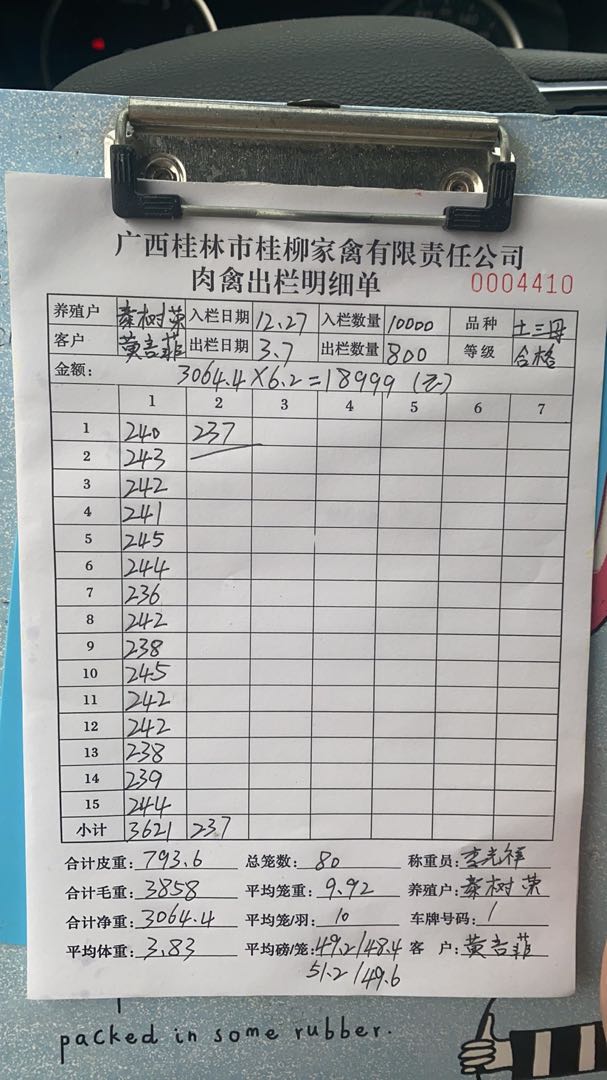 广西桂林市桂柳家禽有限责任公司
肉禽出栏明细单 0004410
养殖户 秦树荣 入栏日期 12.27 入栏数量 10000 品种 土三母
客户 黄吉菲 出栏日期 3.7 出栏数量 800 等级 合格
金额: 3064.4×6.2=18999(元)
1 2 3 4 5 6 7
1 240 237
2 243
3 242
4 241
5 245
6 244
7 236
8 242
9 238
10 245
11 242
12 242
13 238
14 239
15 244
小计 3621 237
合计皮重: 793.6 总笼数: 80 称重员: 李光祥
合计毛重: 3858 平均笼重: 9.92 养殖户: 秦树荣
合计净重: 3064.4 平均笼/羽: 10 车牌号码: /
平均体重: 3.83 平均磅/笼: 49.2/48.4 客 户: 黄吉菲
51.2/49.6
packed in some rubber.